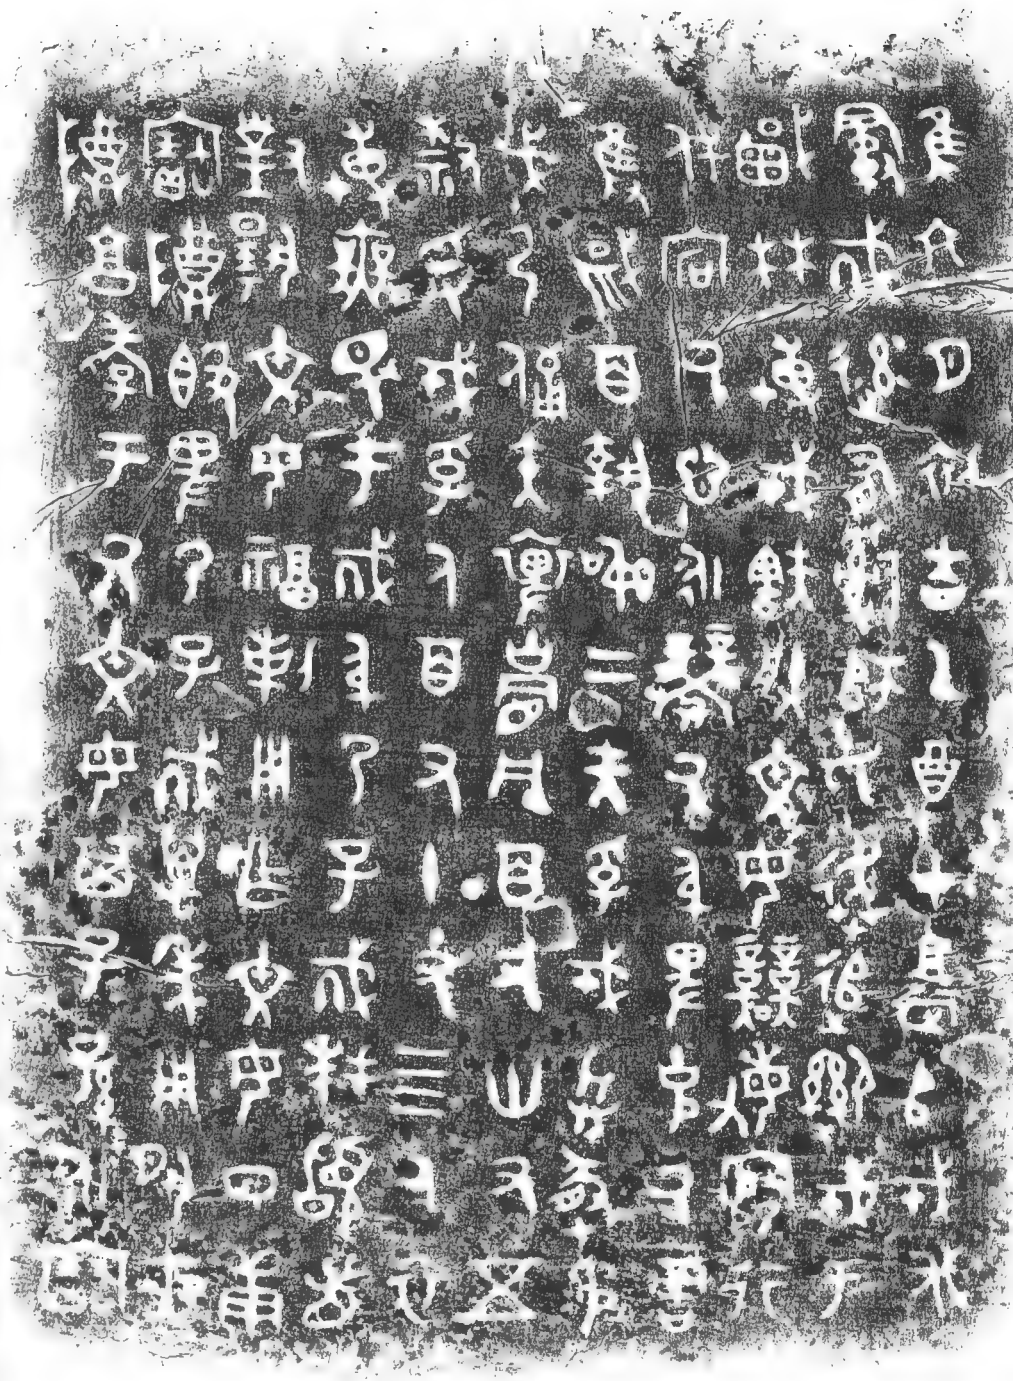 隹六月初吉乙酉才堂𠂤戎伐
𢦚䢦率有𤔲師氏奔追御戎于
棫林博戎㝬朕文母競敏𡨦行
休宕氒心永襲氒身卑克氒啻
隻馘百執訊二夫孚戎兵盾矛
戈弓備矢裨冑凡百又卅又五
𠭯捋戎孚人百又十又四人衣
博無斁于𢦚身乃子𢦚拜䭫首
對揚文母福剌用乍文母日庚
寶尊𣪘卑乃子𢦚萬年用夙夜
尊享孝于氒文母其子子孫孫永寶